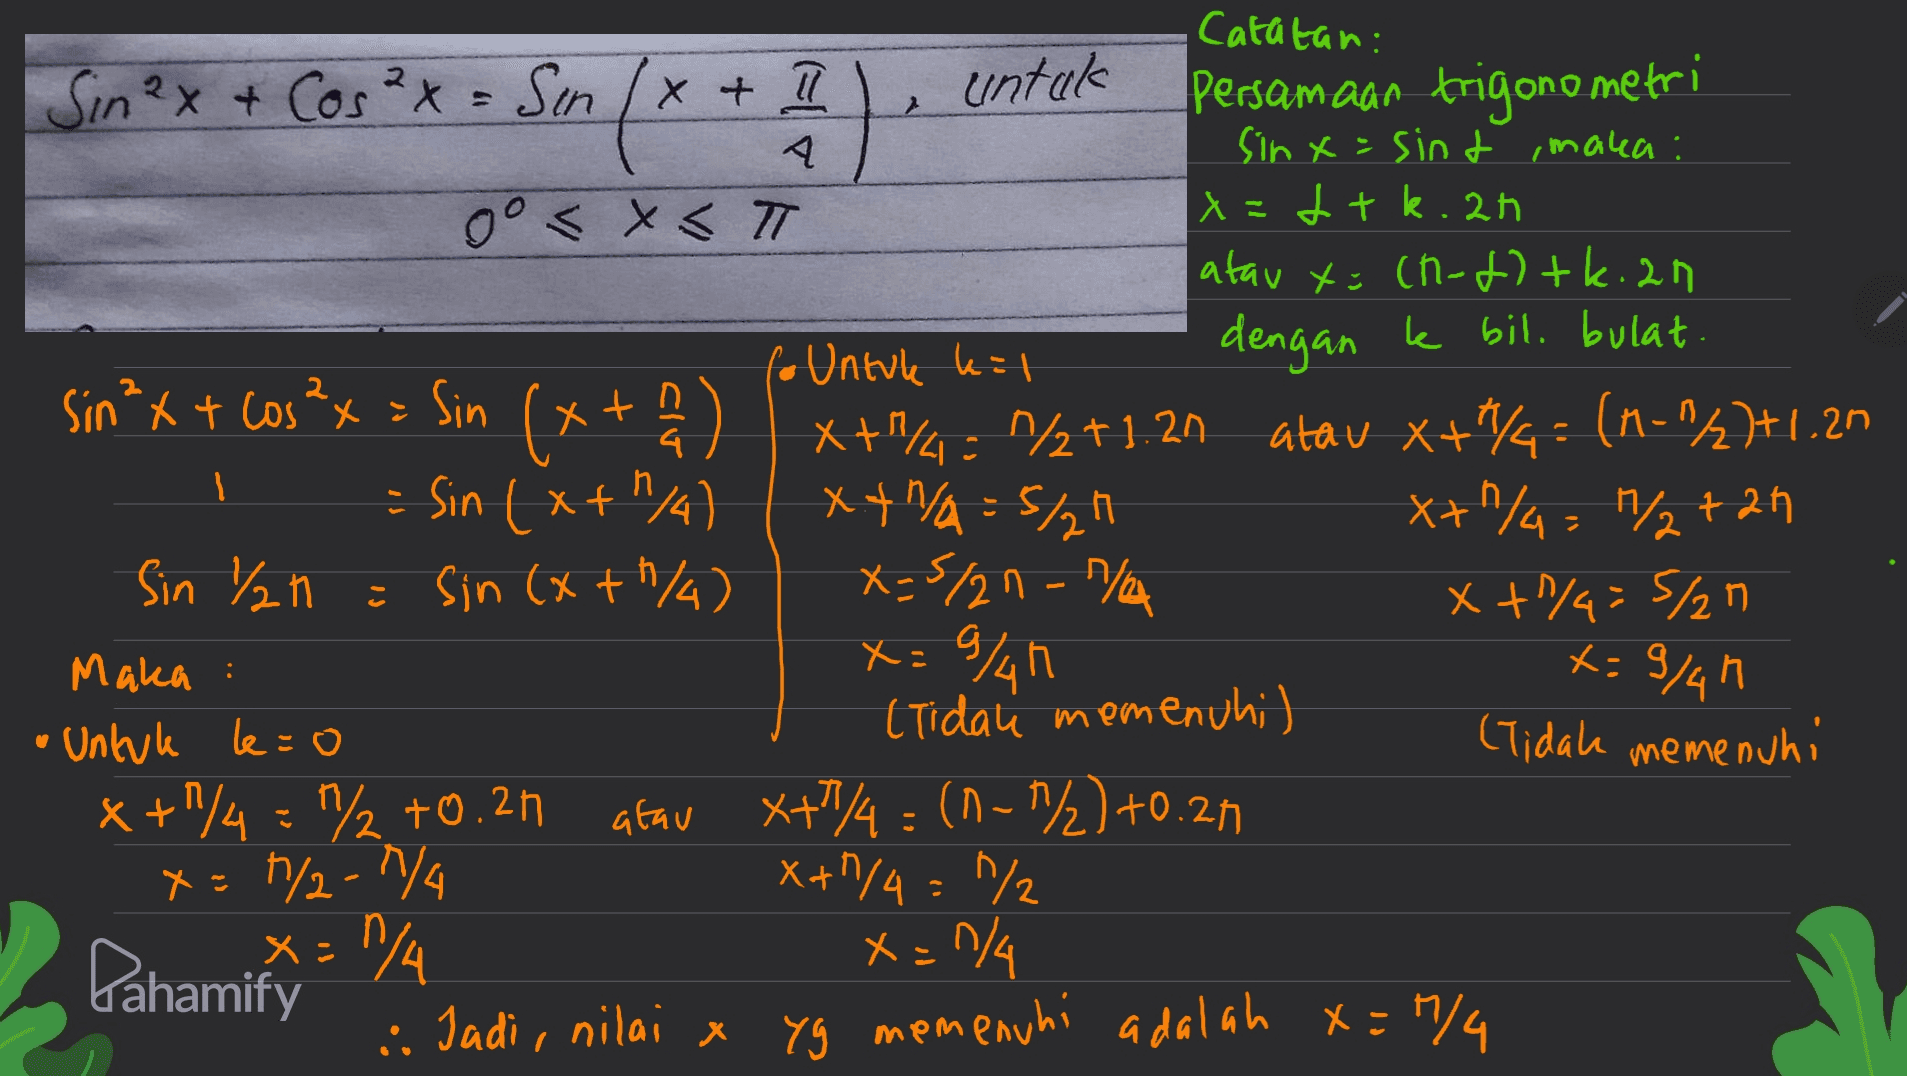 Sin²x + Cos²x = Sin (x + π/4), untuk
0° ≤ x ≤ π
Catatan:
Persamaan trigonometri
Sin x = sin α, maka:
x = α + k.2π
atau x = (π-α) + k.2π
dengan k bil. bulat.
Sin²x + Cos²x = Sin (x + π/4)
1 = Sin (x + π/4)
Sin ½π = Sin (x + π/4)
Maka :
• Untuk k=0
x + π/4 = π/2 + 0.2π atau x + π/4 = (π - π/2) + 0.2π
x = π/2 - π/4 x + π/4 = π/2
x = π/4 x = π/4
• Untuk k=1
x + π/4 = π/2 + 1.2π atau x + π/4 = (π - π/2) + 1.2π
x + π/4 = 5/2 π x + π/4 = π/2 + 2π
x = 5/2 π - π/4 x + π/4 = 5/2 π
x = 9/4 π x = 9/4 π
(Tidak memenuhi) (Tidak memenuhi
∴ Jadi, nilai x yg memenuhi adalah x = π/4
Pahamify